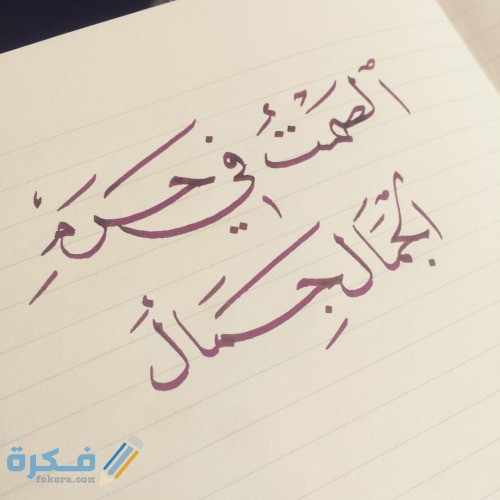 الصَّمْتُ في حَرَمِ
الجَمَالِ جَمَالُ
فكرة
fekera.com